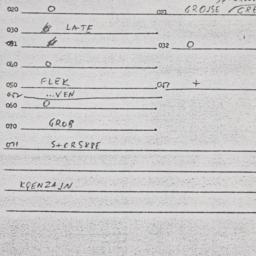 020 O 022 GROSSE /GRE
030 LATE
031 032 O
040 O
050 FLEK 051 +
052 ...VEN
060 O
070 GROB
071
KGENZAJN